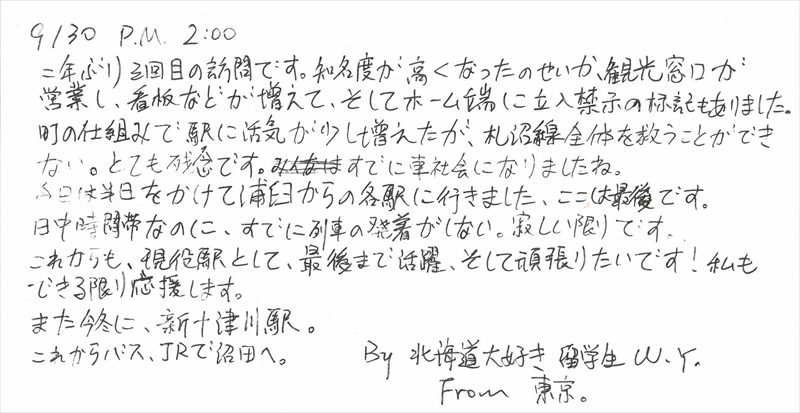 9/30 P.M. 2:00
二年ぶり3回目の訪問です。知名度が高くなったのせいか、観光窓口が
営業し、看板などが増えて、そしてホーム端に立入禁示の標記もありました。
町の仕組みで駅に活気が少し増えたが、札沼線全体を救うことができ
ない。とても残念です。みんなはすでに車社会になりましたね。
今日は半日をかけて浦臼からの各駅に行きました、ここは最後です。
日中時間帯なのに、すでに列車の発着がしない。寂しい限りです。
これからも、現役駅として、最後まで活躍、そして頑張りたいです!私も
できる限り応援します。
また今冬に、新十津川駅。
これからバス、JRで沼田へ。
By 北海道大好き 留学生 W.Y.
From 東京。